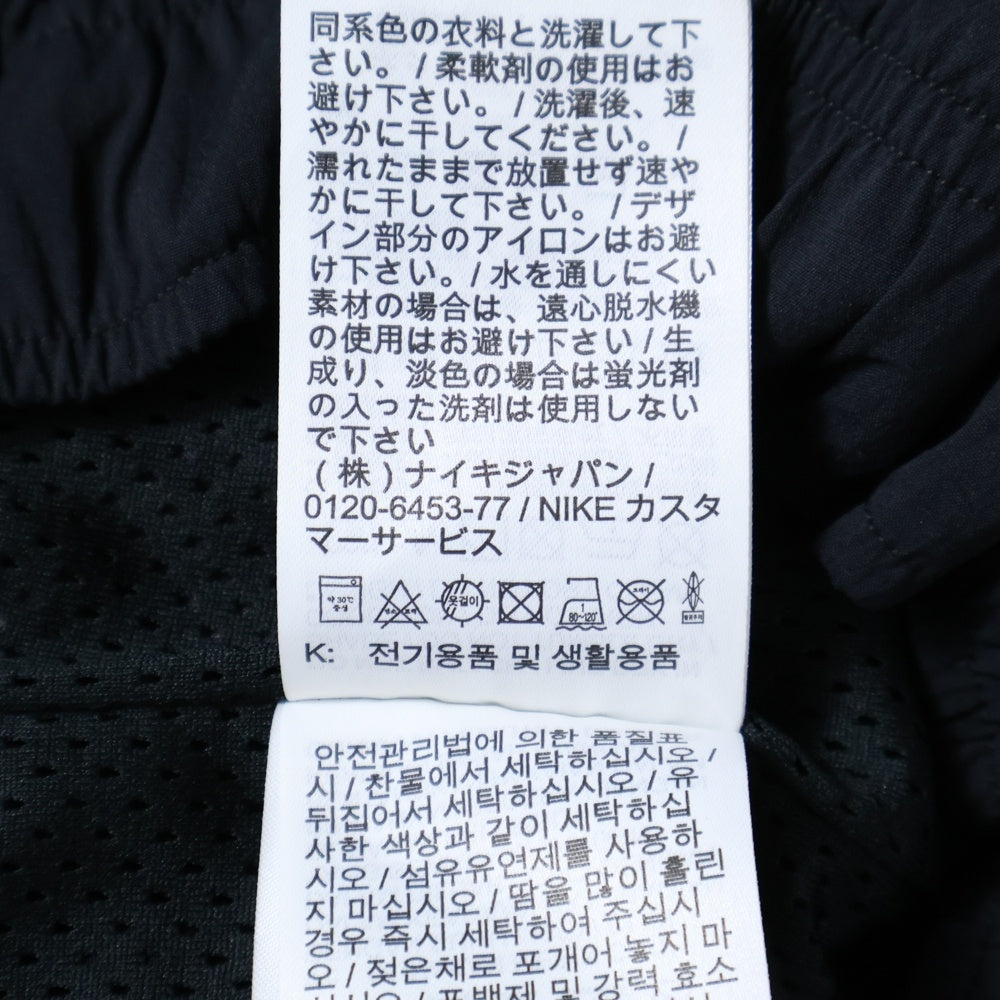 同系色の衣料と洗濯して下
さい。 / 柔軟剤の使用はお
避け下さい。 / 洗濯後、速
やかに干してください。 /
濡れたままで放置せず速や
かに干して下さい。 / デザ
イン部分のアイロンはお避
け下さい。/ 水を通しにくい
素材の場合は、遠心脱水機
の使用はお避け下さい / 生
成り、淡色の場合は蛍光剤
の入った洗剤は使用しない
で下さい
(株) ナイキジャパン /
0120-6453-77 / NIKE カスタ
マーサービス
약 30℃ 중성 옷걸이 1 80~120℃ 드라이
K: 전기용품 및 생활용품
안전관리법에 의한 품질표
시 / 찬물에서 세탁하십시오 /
뒤집어서 세탁하십시오 / 유
사한 색상과 같이 세탁하십
시오 / 섬유유연제를 사용하
지 마십시오 / 땀을 많이 흘린
경우 즉시 세탁하여 주십시
오 / 젖은채로 포개어 놓지 마
십시오 / 표백제 및 강력 효소